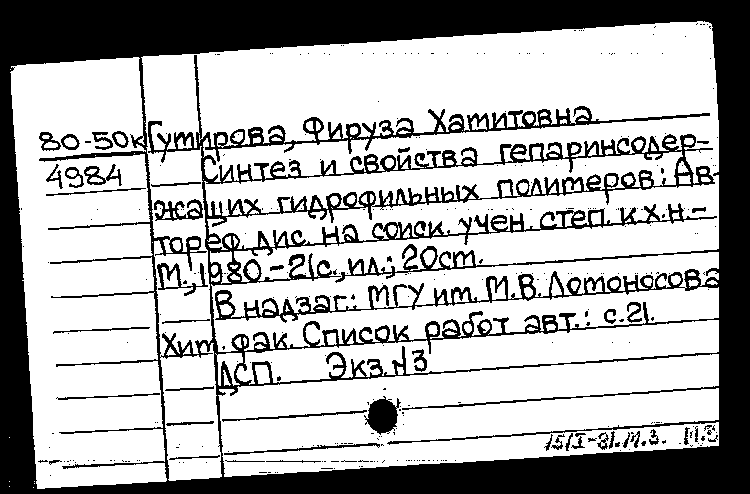 80-50к Гумирова, Фируза Хамитовна.
4984 Синтез и свойства гепаринсодер-
жащих гидрофильных полимеров: Ав-
тореф. дис. на соиск. учен. степ. к.х.н.-
М., 1980.-21с., ил.; 20см.
В надзаг.: МГУ им. М.В. Ломоносова
Хим. фак. Список работ авт.: с.21.
ДСП. Экз. N3
15/I-81. М.З.